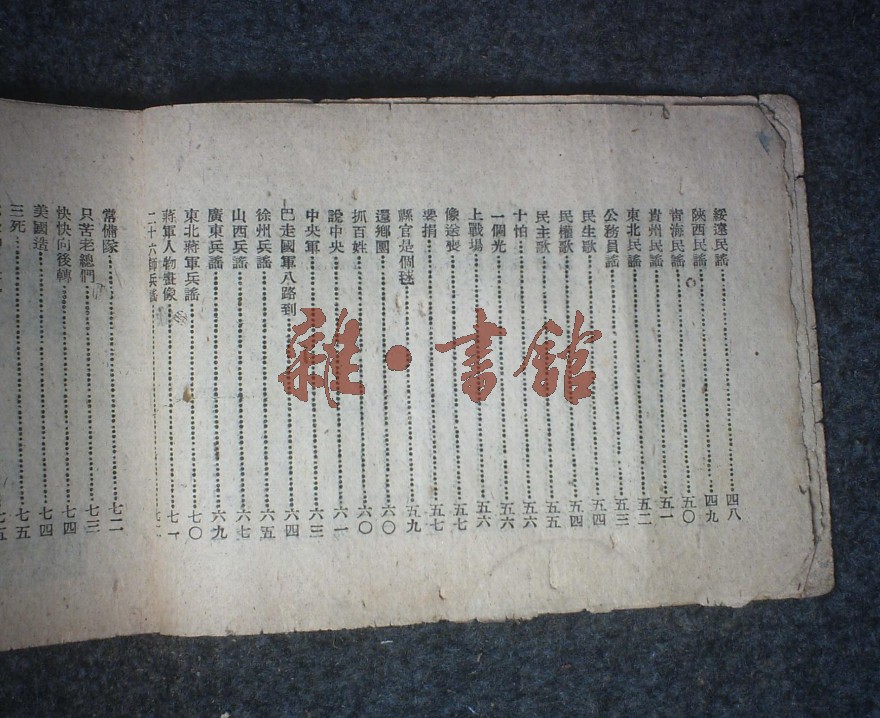 綏遠民謠……四八
陝西民謠……四九
青海民謠……五〇
貴州民謠……五一
東北民謠……五二
公務員謠……五三
民生歌……五四
民權歌……五四
民主歌……五五
十怕……五六
一個光……五六
上戰場……五六
像送喪……五七
要捐……五七
縣官是個毬……五九
還鄉團……六〇
抓百姓……六〇
說中央……六一
中央軍……六三
巴走國軍八路到……六四
徐州兵謠……六五
山西兵謠……六七
廣東兵謠……六九
東北蔣軍兵謠……七〇
蔣軍人物畫像……七一
二十六師兵謠……七二
常備隊……七二
只苦老總們……七三
快快向後轉……七四
美國造……七四
三死……七五
七五
雜·書館